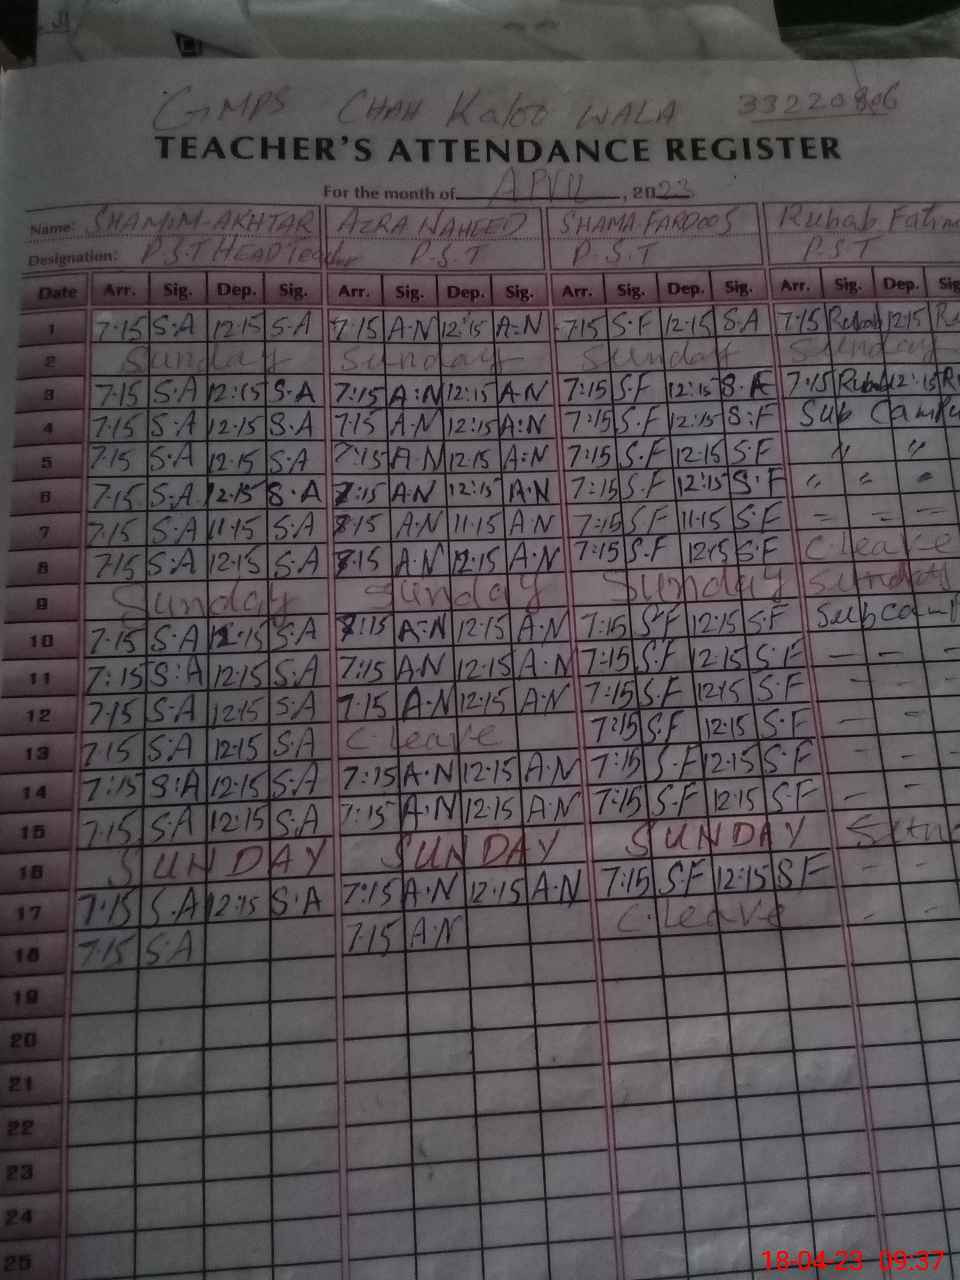 GMPS CHAH Kaloo WALA 33220806
TEACHER'S ATTENDANCE REGISTER
For the month of APVIL, 2023
Name: SHAMIM-AKHTAR AZRA NAHEED SHAMA FARDOOS Rubab Fatim
Designation: P.S.T HEAD Teacher P.S.T P.S.T P.S.T
Date Arr. Sig. Dep. Sig. Arr. Sig. Dep. Sig. Arr. Sig. Dep. Sig. Arr. Sig. Dep. Sig
1 7:15 S.A 12:15 S.A 7:15 A.N 12:15 A=N 7:15 S.F 12:15 S.A 7:15 Rubab 12:15 Ru
2 Sunday Sunday Sunday Sunday
3 7:15 S.A 12:15 S.A 7:15 A:N 12:15 A.N 7:15 S.F 12:15 S.F 7:15 Rubab 12:15 R
4 7:15 S.A 12:15 S.A 7:15 A.N 12:15 A:N 7:15 S.F 12:15 S:F Sub Cam
5 7:15 S.A 12:15 S.A 7:15 A.N 12:15 A=N 7:15 S.F 12:15 S.F " "
6 7:15 S.A 12:15 S.A 7:15 A.N 12:15 A.N 7:15 S.F 12:15 S.F " " "
7 7:15 S.A 11:15 S.A 7:15 A.N 11:15 A.N 7:15 S.F 11:15 S.F – – –
8 7:15 S.A 12:15 S.A 7:15 A.N 12:15 A.N 7:15 S.F 12:15 S.F C.leave
9 Sunday Sunday Sunday Sunday
10 7:15 S.A 12:15 S.A 7:15 A=N 12:15 A.N 7:15 S.F 12:15 S.F Sub cam
11 7:15 S:A 12:15 S.A 7:15 A.N 12:15 A.N 7:15 S.F 12:15 S.F – – –
12 7:15 S.A 12:15 S.A 7:15 A.N 12:15 A.N 7:15 S.F 12:15 S.F – –
13 7:15 S.A 12:15 S.A C.leave 7:15 S.F 12:15 S.F – –
14 7:15 S:A 12:15 S.A 7:15 A.N 12:15 A.N 7:15 S.F 12:15 S.F – –
15 7:15 S.A 12:15 S.A 7:15 A.N 12:15 A.N 7:15 S.F 12:15 S.F – –
16 SUNDAY SUNDAY SUNDAY
17 7:15 S.A 12:15 S.A 7:15 A.N 12:15 A.N 7:15 S.F 12:15 S F – –
18 7:15 S.A 7:15 A.N C.leave – –
19
20
21
22
23
24
25
18-04-23 09:37